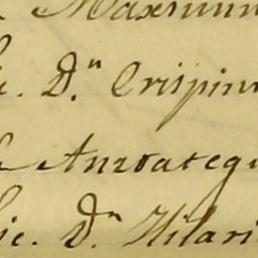 Maximin
Dn Crispin
Anzoategu
ic. Dn Hilari